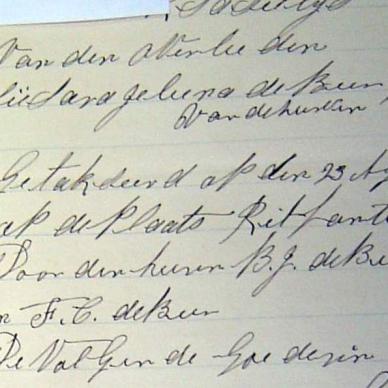 Van den Overlee den
geluna de Beer
Van de huisen
Getakseerd op den 23 Ap
op de Plaats Rit fonte
Door den heren B.J. de Be
n F.C. de Beer
De Vol Gen de Goe deren